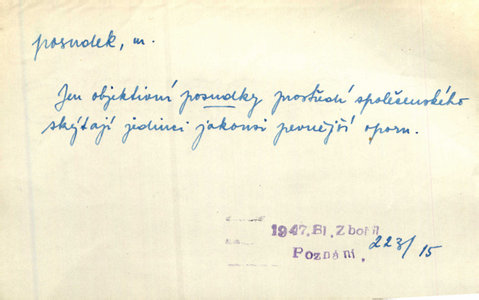 posudek, m.
Jen objektivní posudky prostředí společenského
skýtají jedinci jakousi pevnější oporu.
1947. Bl. Zbořil
Poznání, 223/15